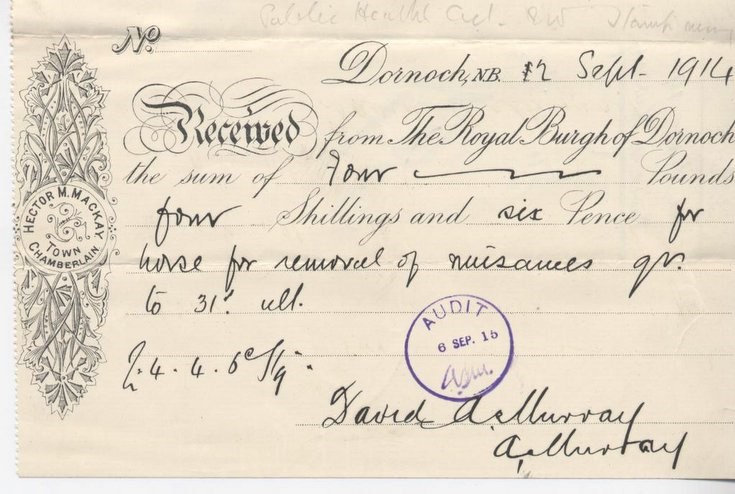 Public Health Act.
No.
Dornoch, N.B. 12 Sept. 1914
Received from The Royal Burgh of Dornoch
the sum of Four Pounds
four Shillings and six Pence for
horse for removal of nuisances qr.
to 31st ult.
HECTOR M. MACKAY
TOWN
CHAMBERLAIN
AUDIT
6 SEP. 15
£4.4.6
David A. Murray
A. Murray